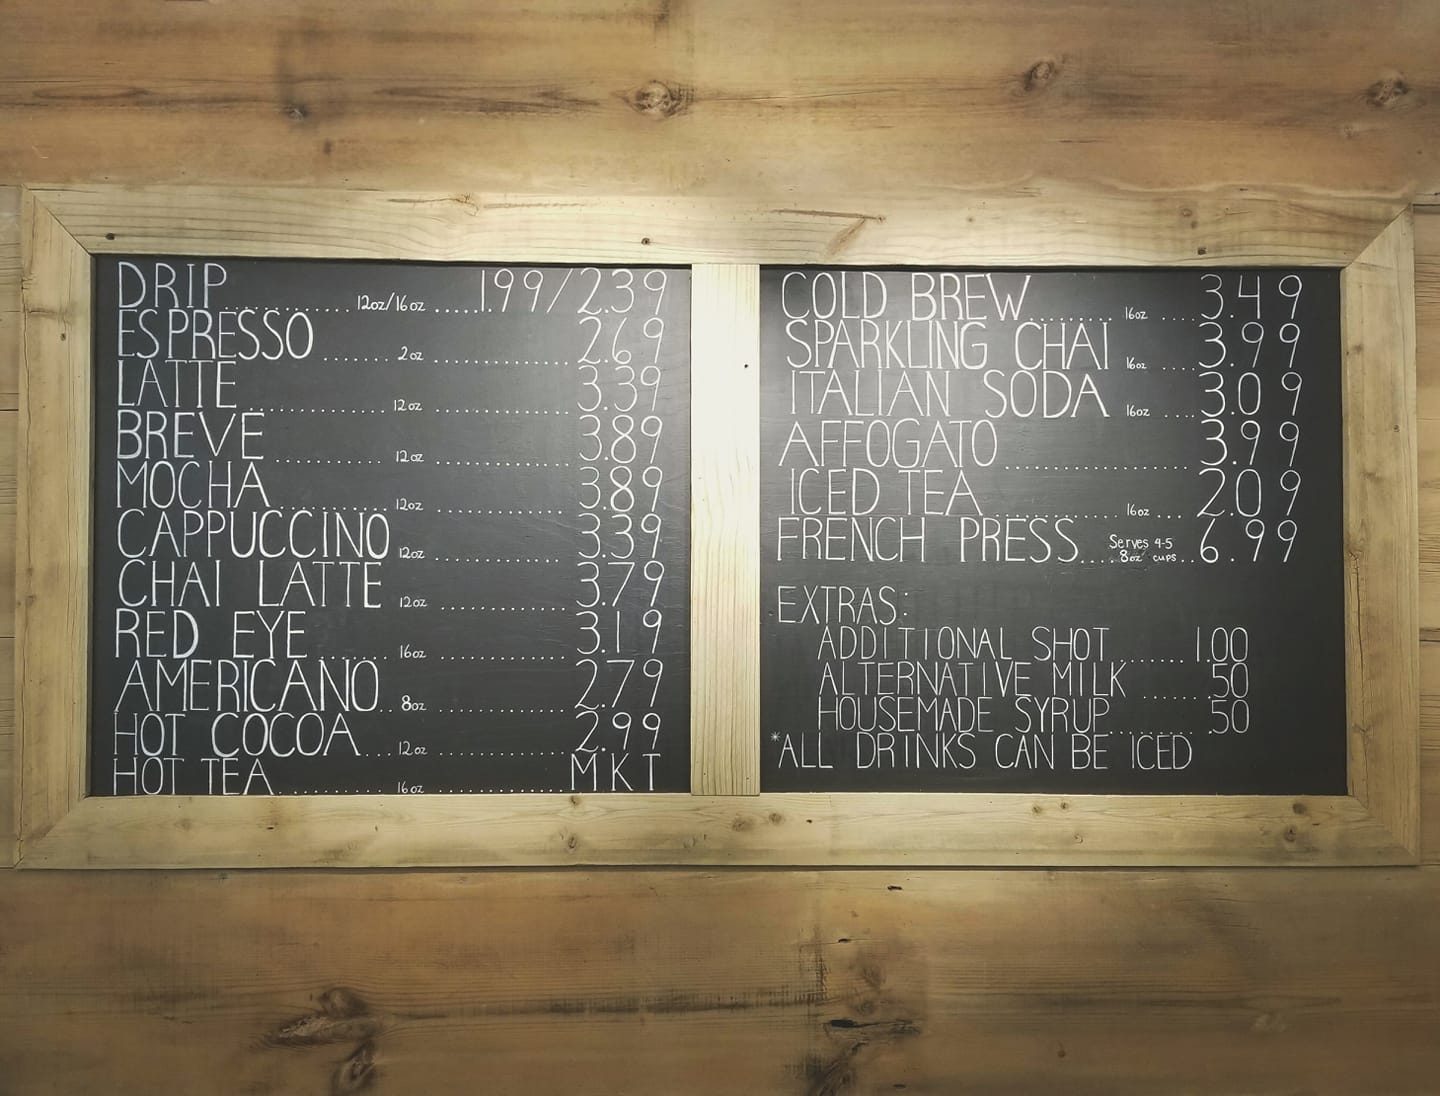 DRIP........ 12oz/16oz .....1.99/2.39
ESPRESSO ....... 2oz ............... 2.69
LATTE ............... 12oz ................ 3.39
BREVE ............. 12oz ................ 3.89
MOCHA ............. 12oz ................ 3.89
CAPPUCCINO 12oz ................ 3.39
CHAI LATTE 12oz ................ 3.79
RED EYE ......... 16oz ............... 3.19
AMERICANO .. 8oz ............... 2.79
HOT COCOA .... 12oz ............... 2.99
HOT TEA ............ 16oz ............... MKT
COLD BREW ......... 16oz .... 3.49
SPARKLING CHAI 16oz .... 3.99
ITALIAN SODA 16oz .... 3.09
AFFOGATO ........................ 3.99
ICED TEA ............... 16oz .... 2.09
FRENCH PRESS .... Serves 4-5 8oz cups .. 6.99
EXTRAS:
ADDITIONAL SHOT ...... 1.00
ALTERNATIVE MILK ...... .50
HOUSEMADE SYRUP ........ .50
*ALL DRINKS CAN BE ICED